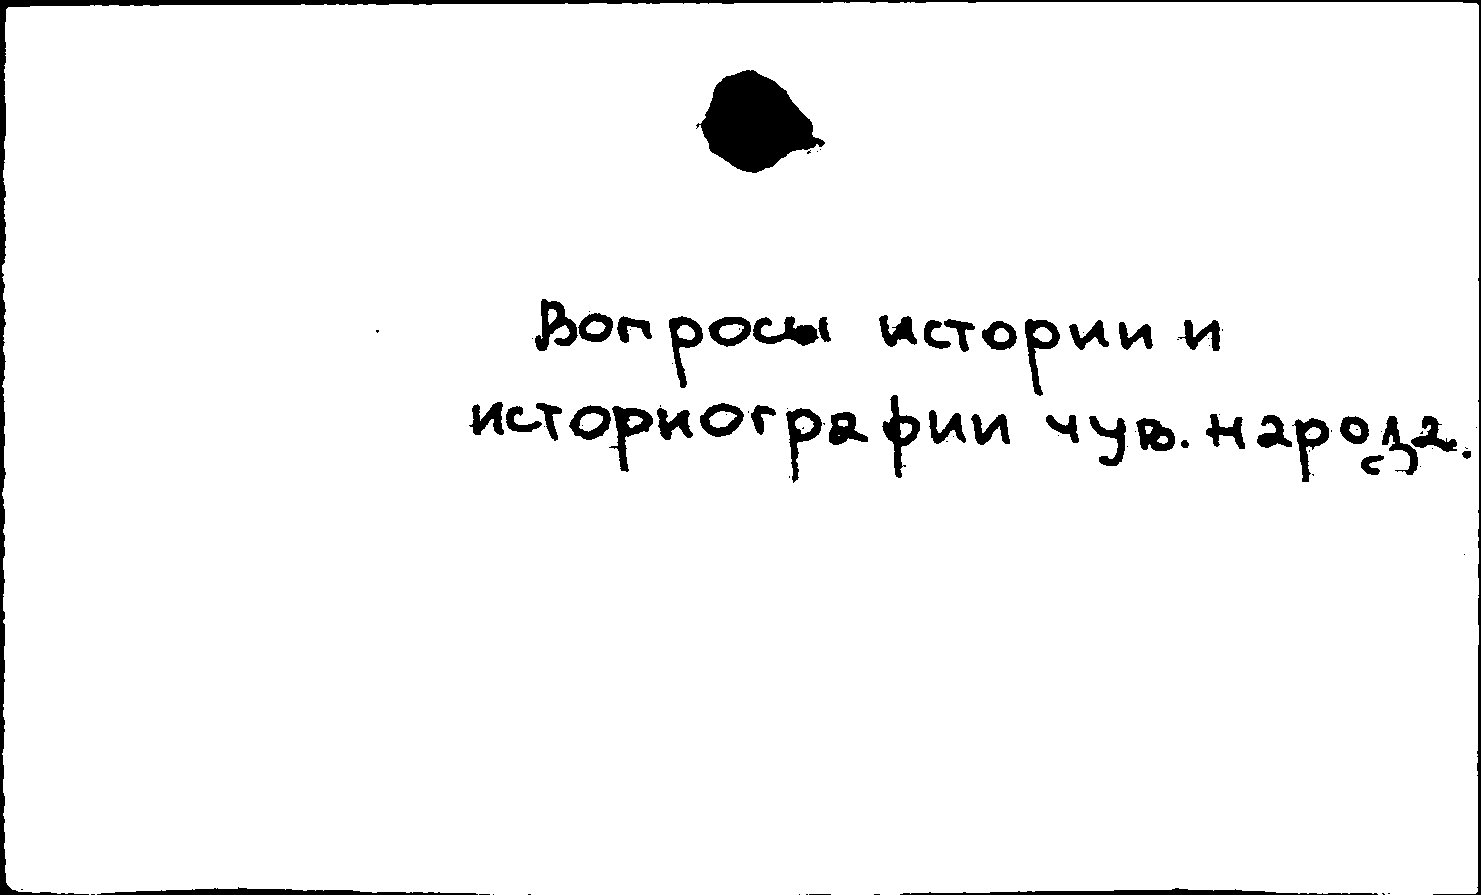 Вопросы истории и
историографии чув. народа.